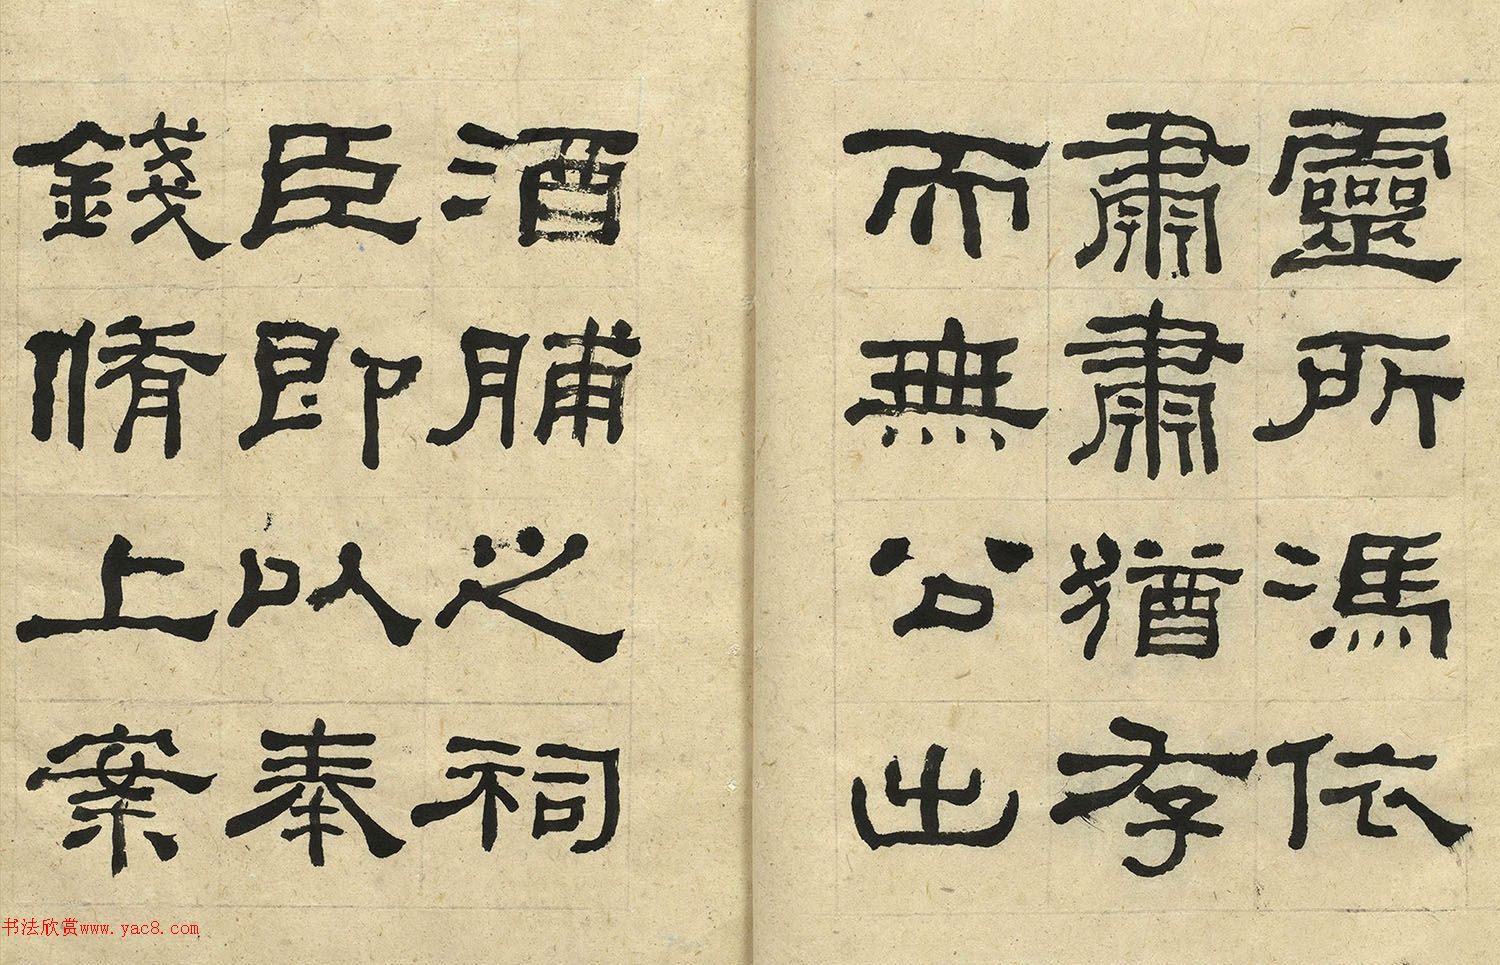 靈所馮依
肅肅猶存
而無公出
酒脯之祠
臣即以奉
錢脩上案
书法欣赏www.yac8.com